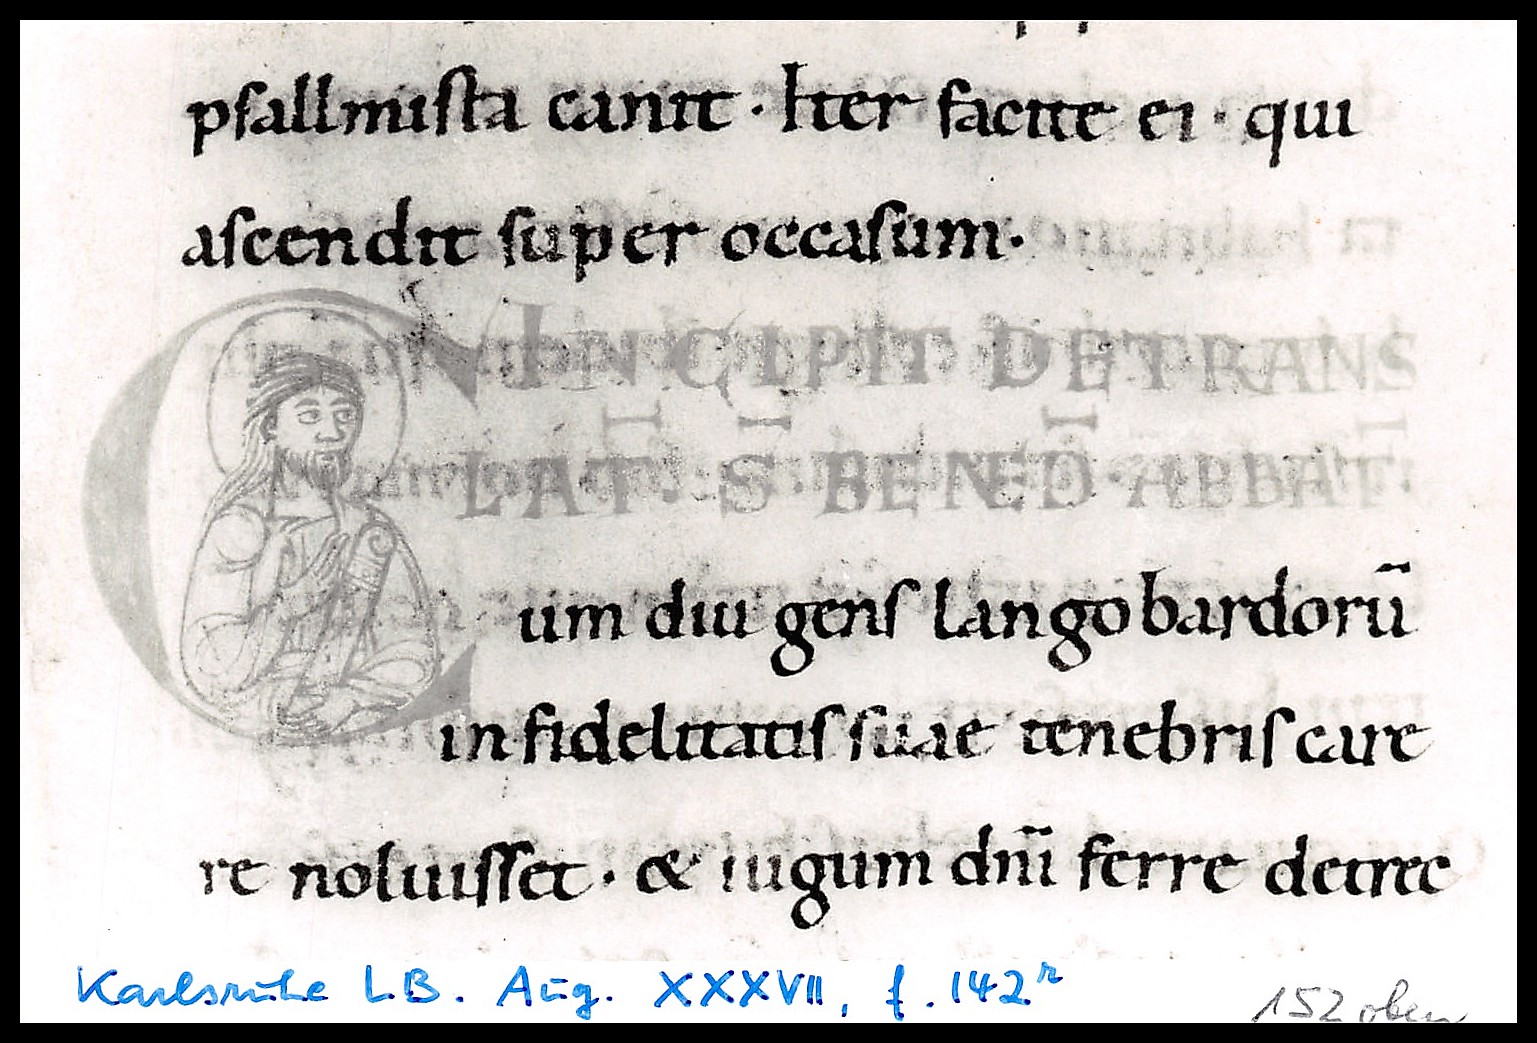 psallmista canit · Iter facite ei · qui
ascendit super occasum·
INCIPIT DE TRANS
LAT· S̄ BENED̄· ABBAT̄·
Cum diu gens langobardorū
infidelitatis suae tenebris care
re noluisset · & iugum dn̄i ferre detrec
Karlsruhe LB. Aug. XXXVII, f. 142r
152 oben